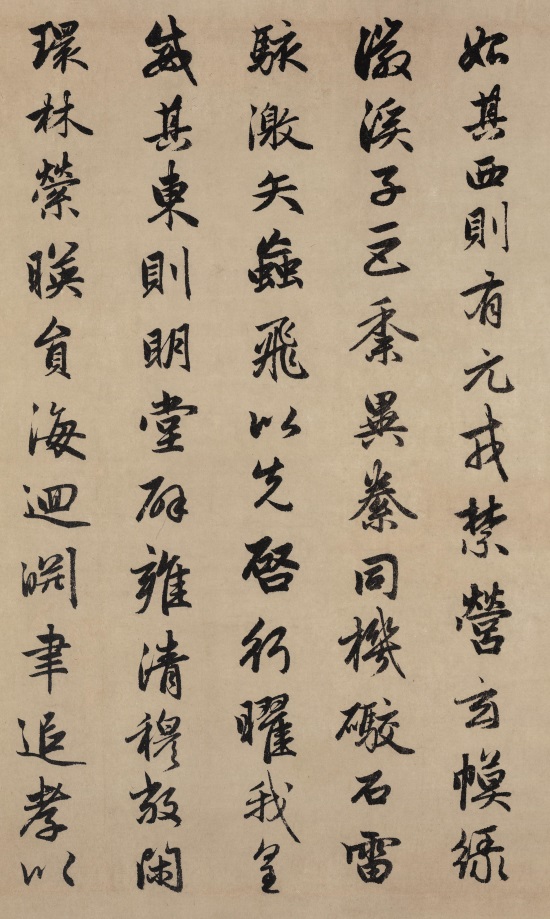 始其西則有元戎禁營玄幙綠
徽溪子巨黍異絭同機礮石雷
駭激矢蝱飛以先啓行曜我皇
威其東則明堂辟雍清穆敞閑
環林縈暎員海迴淵聿追孝以